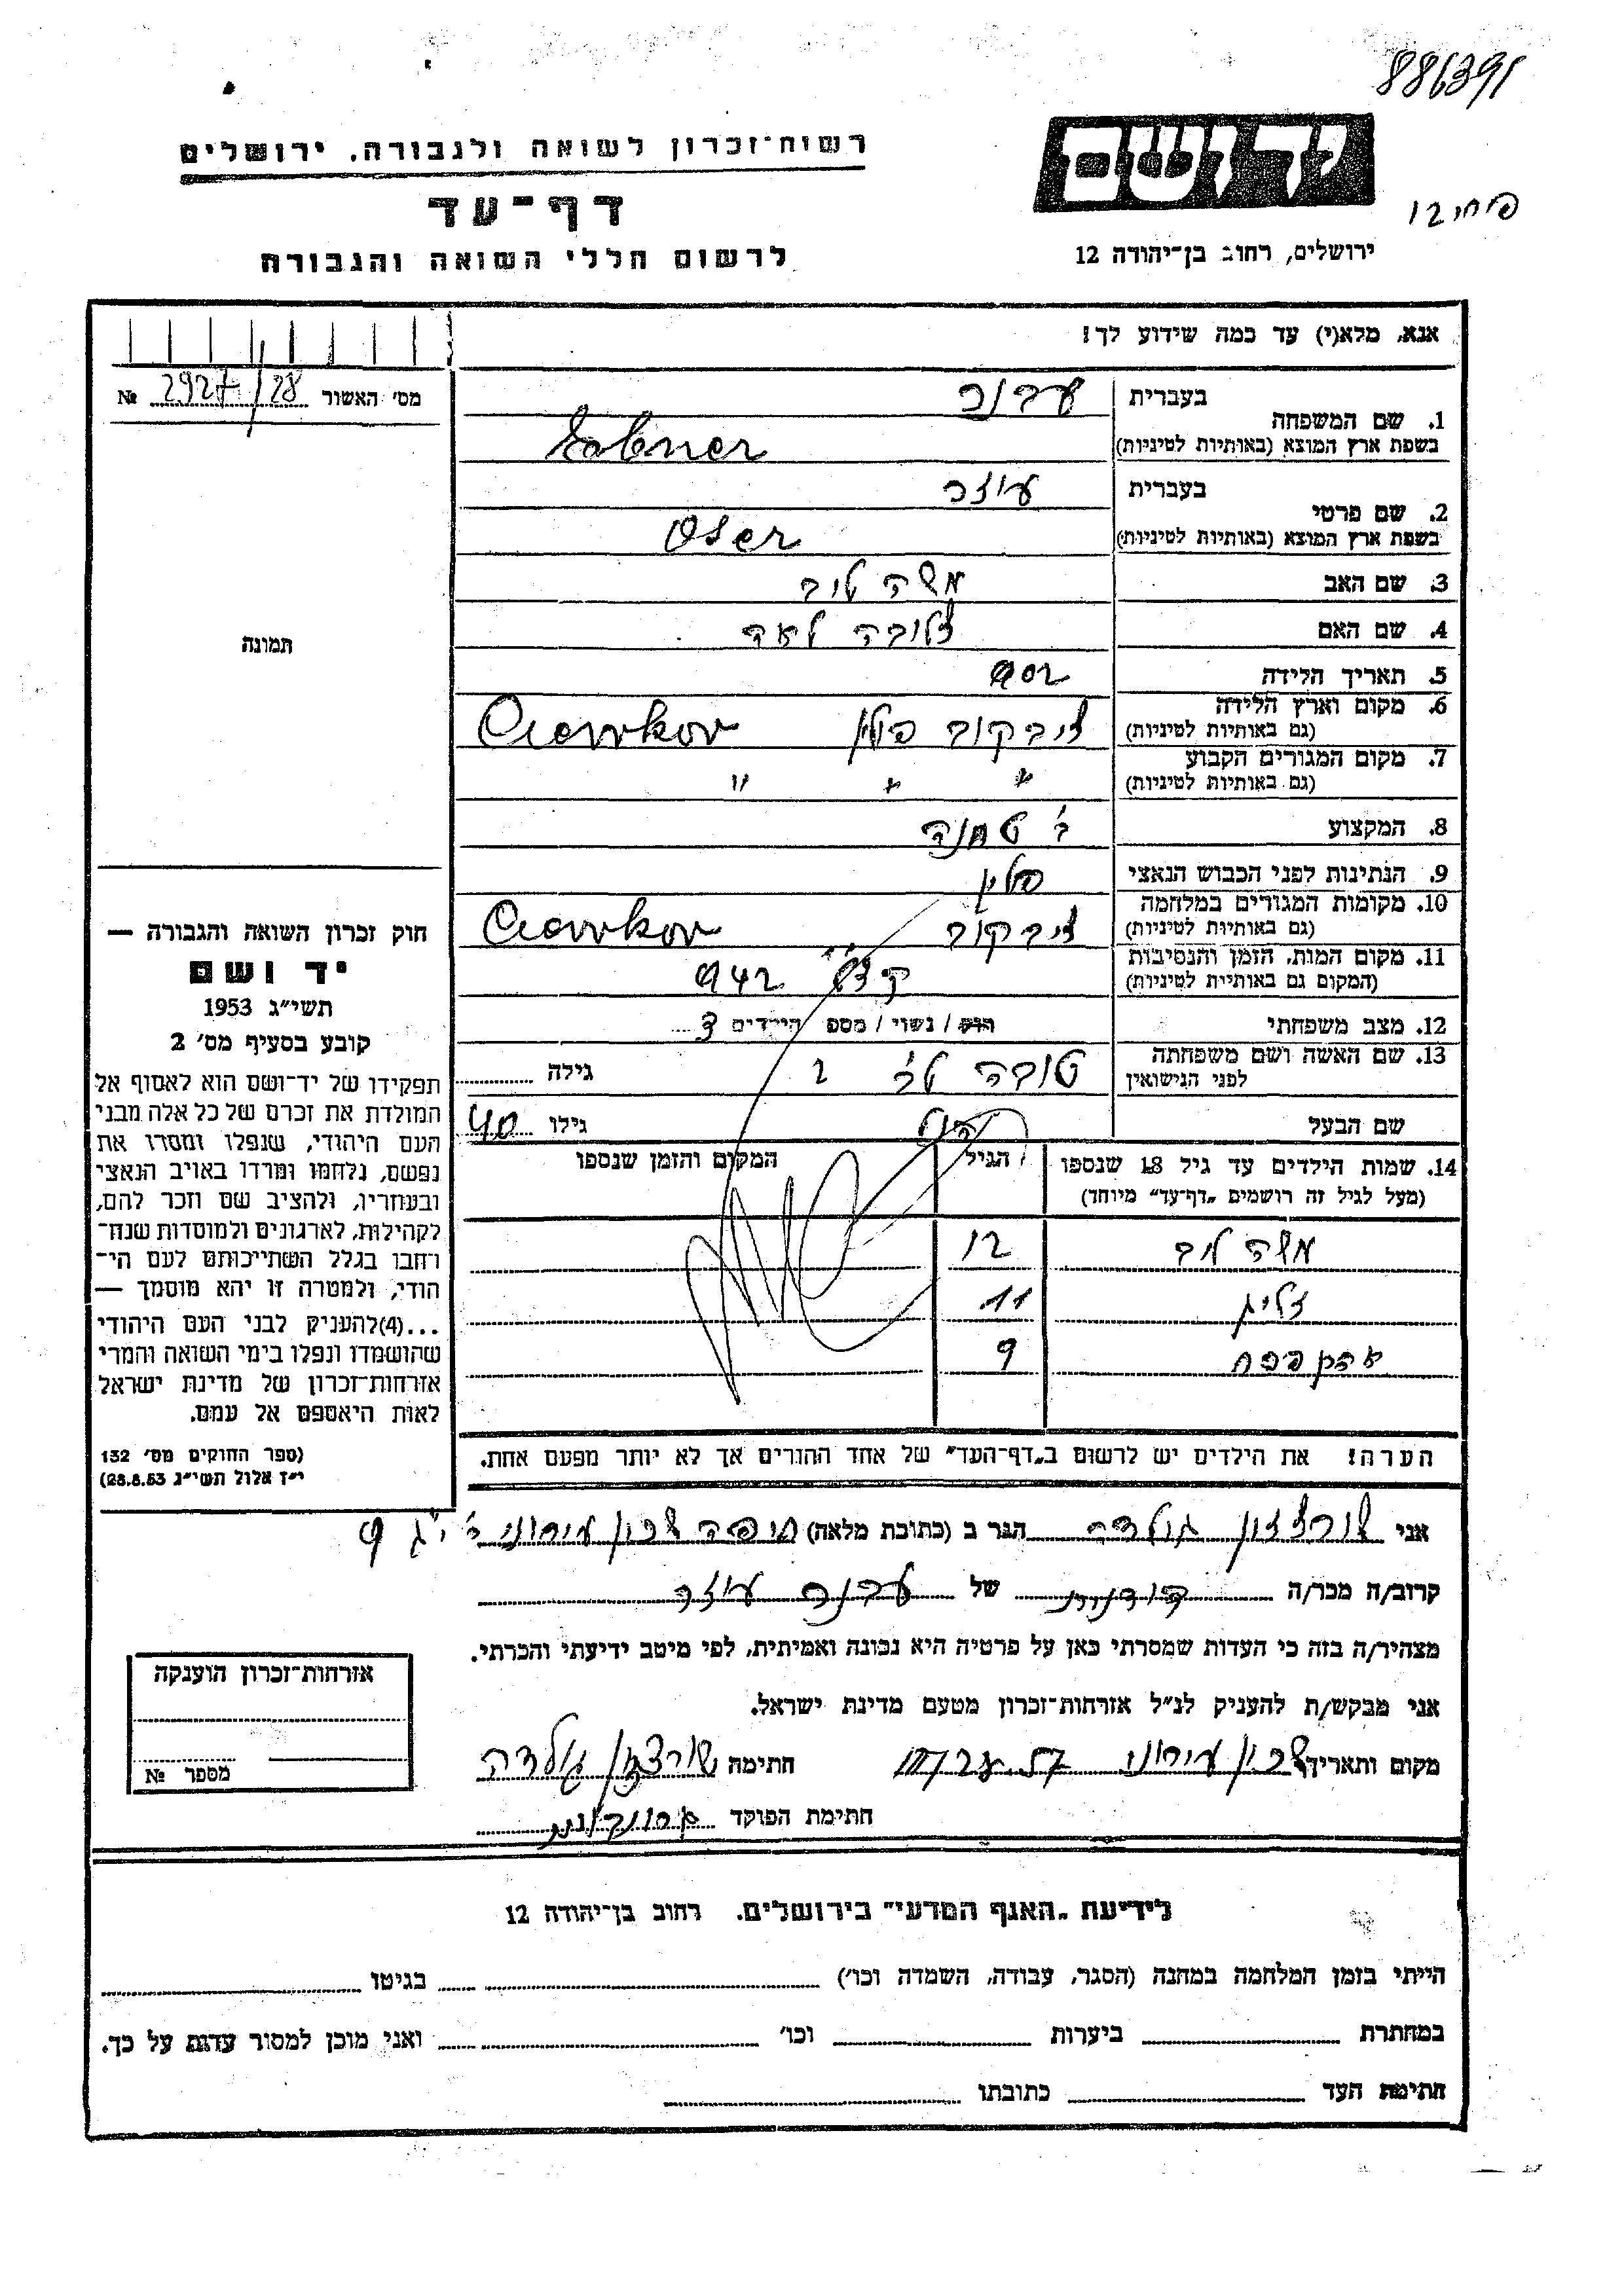 886391
רשות־זכרון לשואה ולגבורה, ירושלים
יד ושם
דף־עד
12
לרשום חללי השואה והגבורה
ירושלים, רחוב בן־יהודה 12
אנא, מלא(י) עד כמה שידוע לך!
מס׳ האשור 2927/28 №
1. שם המשפחה
בעברית עבנר
בשפת ארץ המוצא (באותיות לטיניות) Eabner
2. שם פרטי
בעברית עוזר
בשפת ארץ המוצא (באותיות לטיניות) Oser
3. שם האב משה לייב
4. שם האם זלובה לאה
תמונה
5. תאריך הלידה 902
6. מקום וארץ הלידה
(גם באותיות לטיניות) פולין Ciawkow
7. מקום המגורים הקבוע
(גם באותיות לטיניות) " " "
8. המקצוע ב׳ טחנה
9. הנתינות לפני הכבוש הנאצי פולין
10. מקומות המגורים במלחמה
(גם באותיות לטיניות) Ciawkow
11. מקום המות, הזמן והנסיבות
(המקום גם באותיות לטיניות) 942
12. מצב משפחתי רווק / נשוי / מספ הילדים 3
13. שם האשה ושם משפחתה
לפני הנישואין טובה גילה
שם הבעל גילו 40
14. שמות הילדים עד גיל 18 שנספו
(מעל לגיל זה רושמים „דף־עד״ מיוחד)
הגיל
המקום והזמן שנספו
משה לייב 12
זליג 11
פסח 9
חוק זכרון השואה והגבורה —
יד ושם
תשי״ג 1953
קובע בסעיף מס׳ 2
תפקידו של יד־ושם הוא לאסוף אל
המולדת את זכרם של כל אלה מבני
העם היהודי, שנפלו ומסרו את
נפשם, נלחמו ומרדו באויב הנאצי
ובעוזריו, ולהציב שם וזכר להם,
לקהילות, לארגונים ולמוסדות שנח־
רחבו בגלל השתייכותם לעם הי־
הודי, ולמטרה זו יהא מוסמך —
...(4)להעניק לבני העם היהודי
שהושמדו ונפלו בימי השואה והמרי
אזרחות־זכרון של מדינת ישראל
לאות היאספם אל עמם.
(ספר החוקים מס׳ 132
י״ז אלול תשי״ג 28.8.53)
הערה! את הילדים יש לרשום ב„דף־העד״ של אחד ההורים אך לא יותר מפעם אחת.
אני שורצזון גולדה הגר ב (כתובת מלאה) חיפה שכון עירוני ב׳ י״ג 9
קרוב/ה מכר/ה של עבנר עוזר
מצהיר/ה בזה כי העדות שמסרתי כאן על פרטיה היא נכונה ואמיתית, לפי מיטב ידיעתי והכרתי.
אני מבקש/ת להעניק לנ״ל אזרחות־זכרון מטעם מדינת ישראל.
מקום ותאריך שכון עירוני חתימה שורצזון גולדה
חתימת הפוקד
אזרחות־זכרון הוענקה
מספר №
לידיעת „האגף המדעי״ בירושלים, רחוב בן־יהודה 12
הייתי בזמן המלחמה במחנה (הסגר, עבודה, השמדה וכו׳) בגיטו
במחתרת ביערות וכו׳ ואני מוכן למסור עדות על כך.
חתימת העד כתובתו